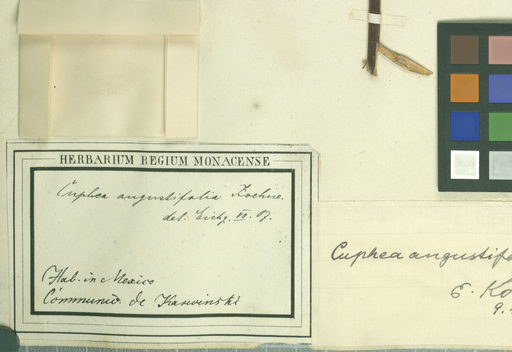 HERBARIUM REGIUM MONACENSE
Cuphea angustifolia Koehne.
det. Eichz. VII. 07.
Hab. in Mexico
Communic. de Karwinski
Cuphea angustifo
E. Ko
9.